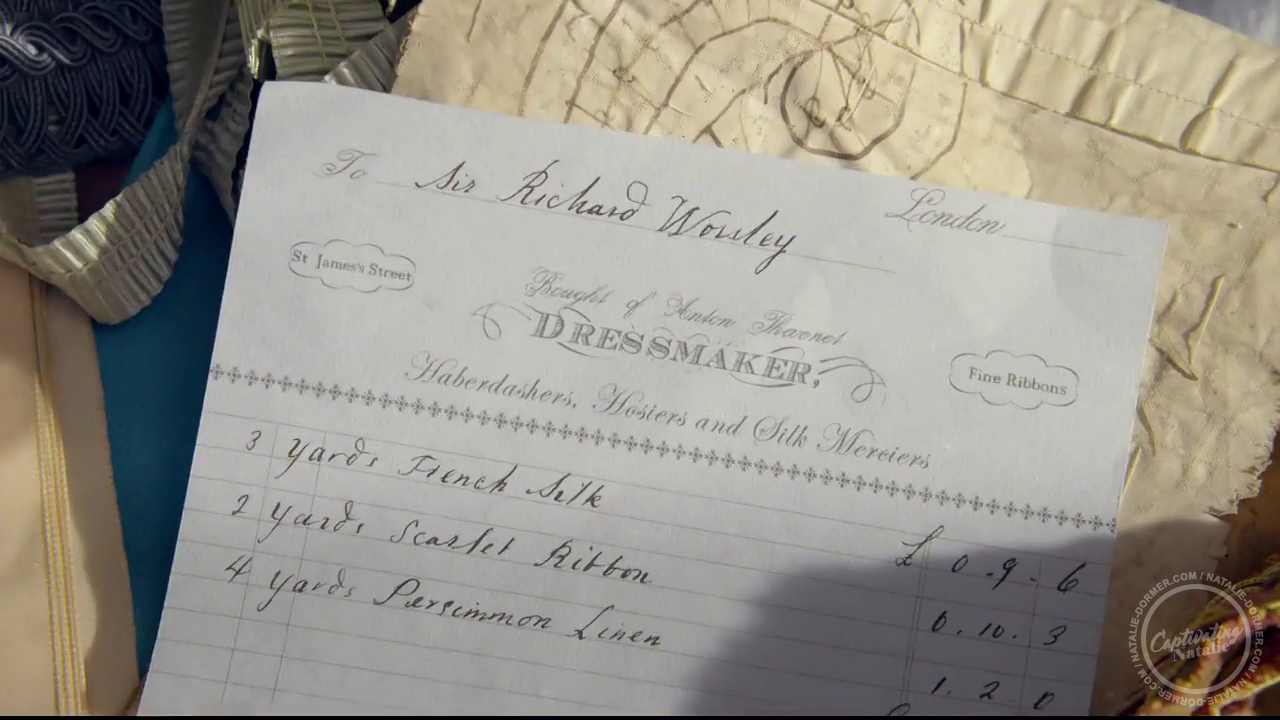 To Sir Richard Worsley London
St James's Street
Bought of Anton Thevenet
DRESSMAKER,
Fine Ribbons
Haberdashers, Hosiers and Silk Merciers
3 yards French Silk £ 0.9.6
2 yards Scarlet Ribbon 0.10.3
4 yards Persimmon Linen 1.2 0
NATALIE-DORMER.COM / NATALIE-DORMER.COM / NATALIE-DORMER.COM / NATALIE-DORMER.COM /
Captivating
Natalie